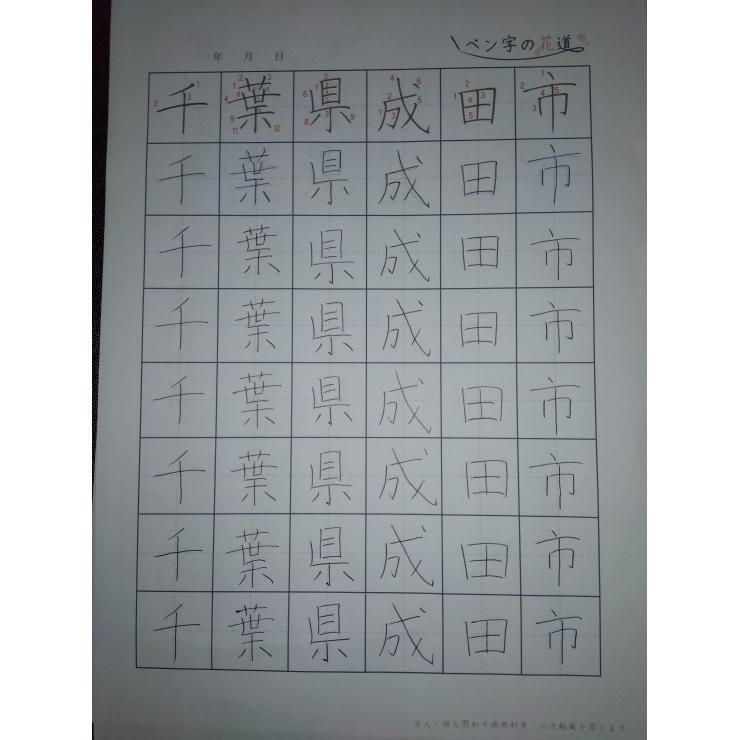 ペン字の花道
年 月 日
千葉県成田市
千葉県成田市
千葉県成田市
千葉県成田市
千葉県成田市
千葉県成田市
千葉県成田市
千葉県成田市
法人・個人問わず商用利用・二次転載を禁じます